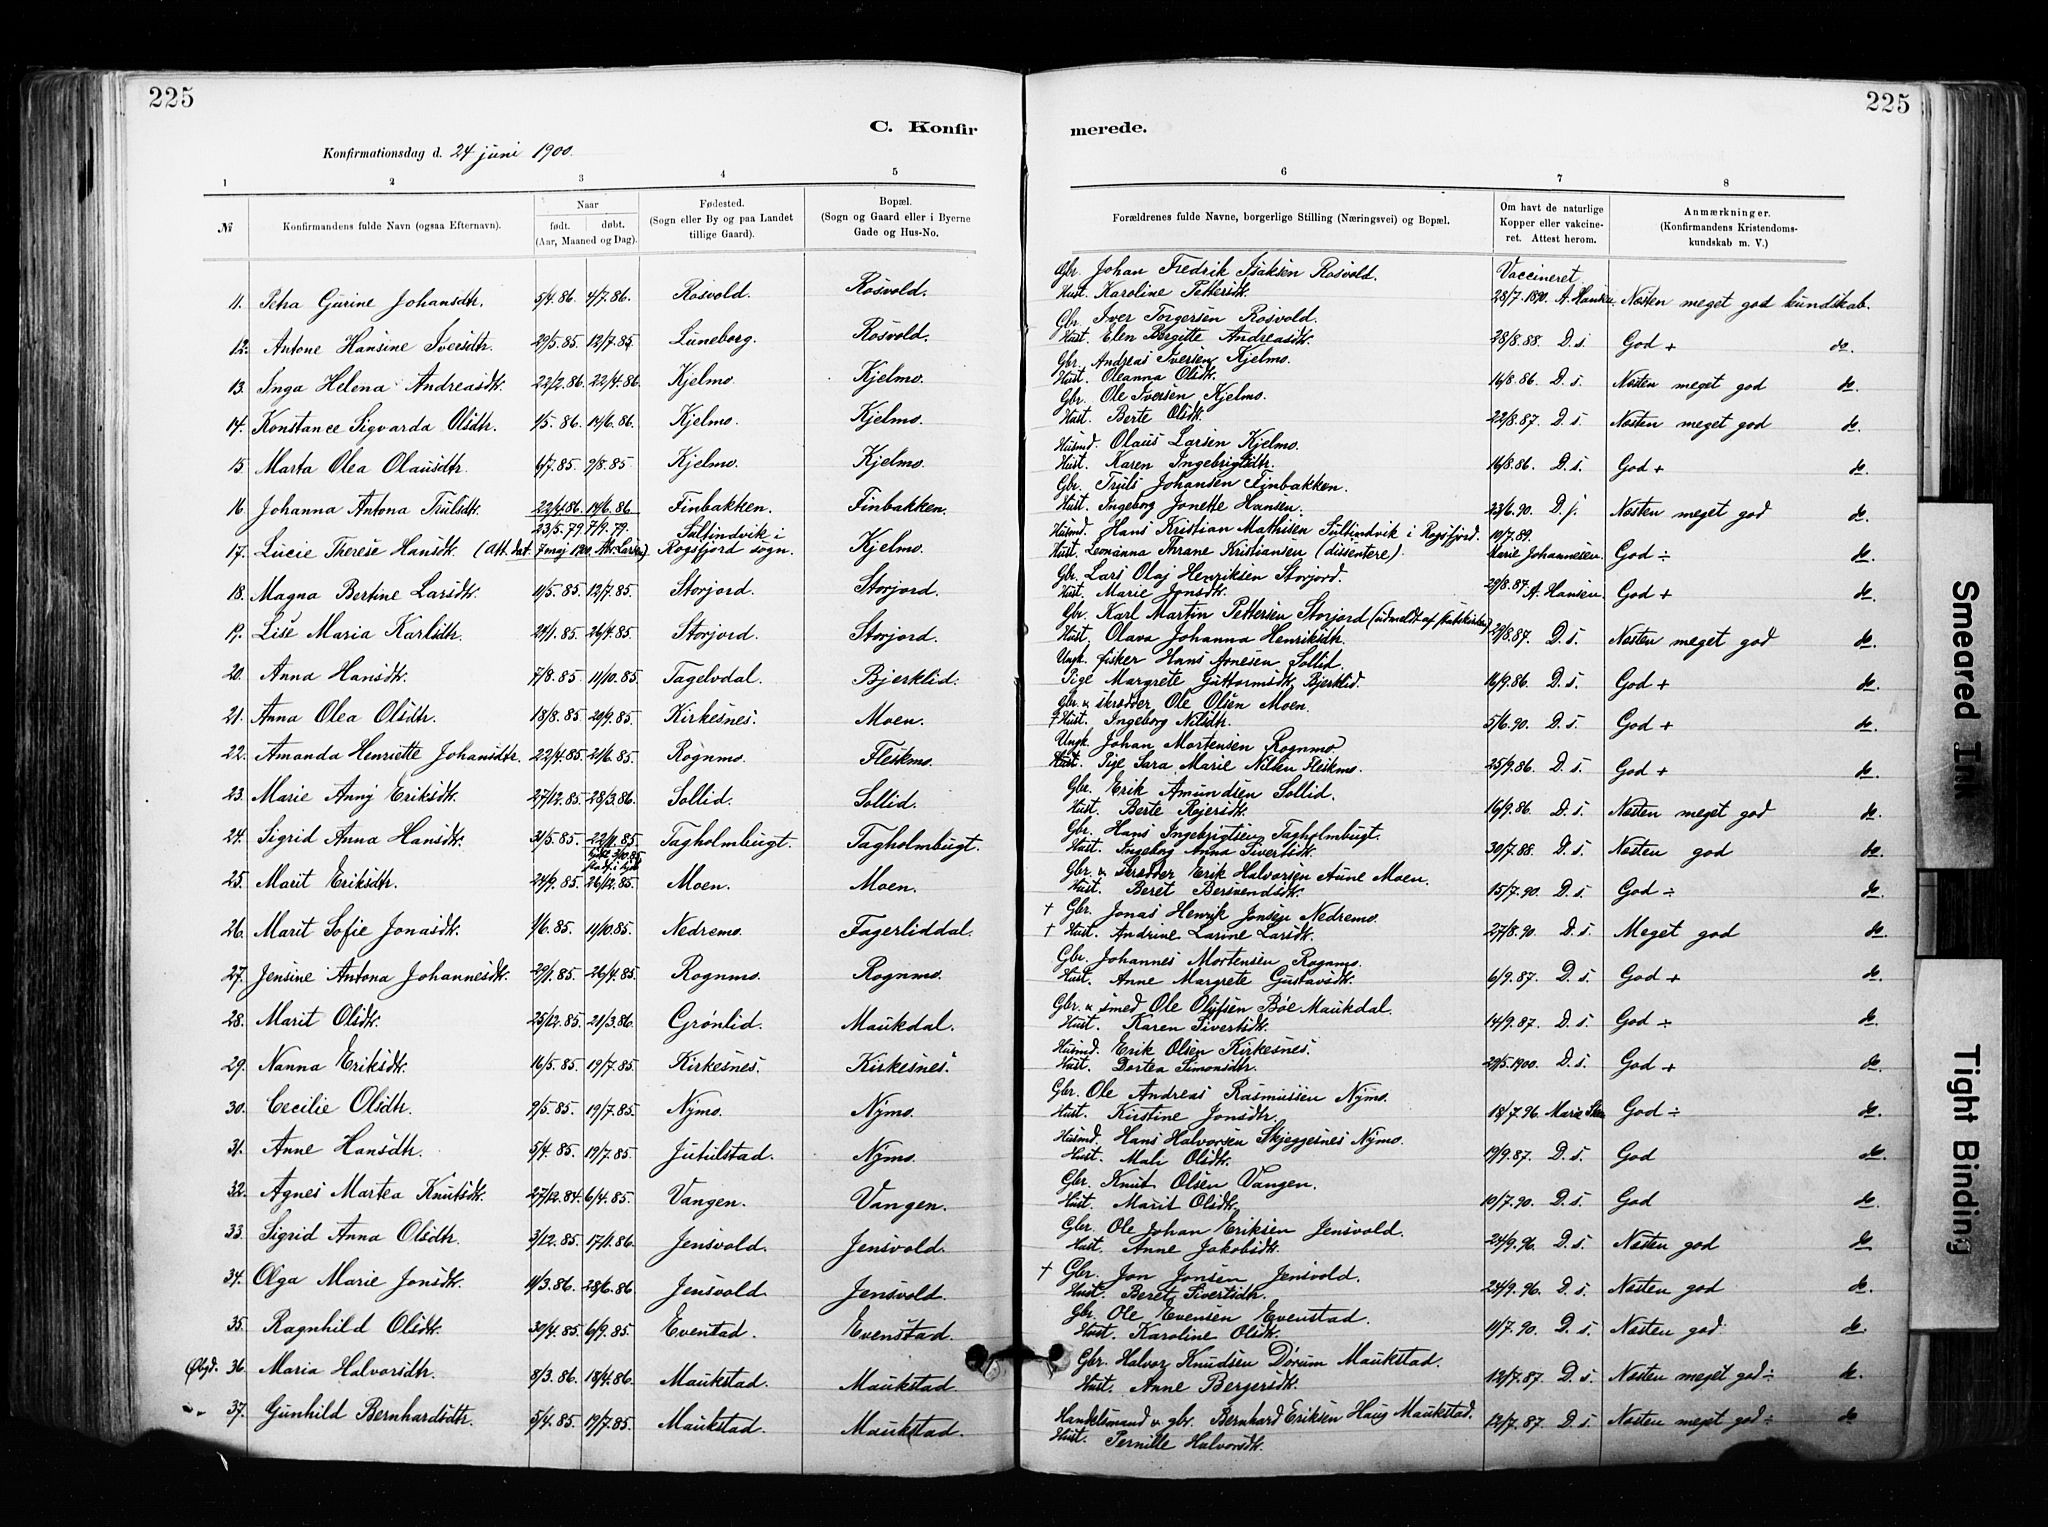 225
225
C. Konfir
merede.
Konfirmationsdag d. 24 juni 1900.
1 2 3 4 5 6 7 8
№ Konfirmandens fulde Navn (ogsaa Efternavn). Naar født. døbt. (Aar, Maaned og Dag). Fødested. (Sogn eller By og paa Landet tillige Gaard). Bopæl. (Sogn og Gaard eller i Byerne Gade og Hus-No. Forældrenes fulde Navne, borgerlige Stilling (Næringsvei) og Bopæl. Om havt de naturlige Kopper eller vakcineret. Attest herom. Anmærkninger. (Konfirmandens Kristendomskundskab m. V.)
Gbr. Johan Fredrik Isaksen Rosvold. Vaccineret
11. Petra Gurine Johansdtr. 5/4.86. 4/7.86. Rosvold. Rosvold. Hust. Karoline Pettersdtr. 28/7.1890. A. Hansen Næsten meget god kundskab.
Gbr. Iver Torgersen Rosvold.
12. Antone Hansine Iversdtr. 29/5.85. 12/7.85. Luneborg. Rosvold. Hust. Elen Birgitte Andreasdtr. 28/8.88. D. s. God + do.
Gbr. Andreas Iversen Kjelmo.
13. Inga Helena Andreasdtr. 22/2.86. 22/4.86. Kjelmo. Kjelmo. Hust. Oleanna Olsdtr. 16/8.86. D. s. Næsten meget god do.
Gbr. Ole Iversen Kjelmo.
14. Konstance Sigvarda Olsdtr. 1/5.86. 14/6.86. Kjelmo. Kjelmo. Hust. Berte Olsdtr. 22/8.87. D. s. Næsten meget god do.
Husmd. Olaus Larsen Kjelmo.
15. Marta Olea Olausdtr. 6/7.85. 9/8.85. Kjelmo. Kjelmo. Hust. Karen Ingebrigtsdtr. 16/8.86. D. s. God + do.
Gbr. Truls Johansen Finbakken.
16. Johanna Antona Trulsdtr. 22/4.86. 14/6.86 Finbakken. Finbakken. Hust. Ingeborg Jonette Hansen. 23/6.90. D. s. Næsten meget god do.
23/5.79. 7/9.79. Sultindvik i Husmd. Hans Kristian Mathisen Sultindvik i Rogsfjord. 10/7.89.
17. Lucie Therese Hansdtr. (Att. dat. 7 maj 1900. Larsen) Rogsfjord sogn. Kjelmo. Hust. Leonanna Thrane Kristiansen (dissentere) Marie Johannesen. God ÷ do.
Gbr. Lars Olaj Henriksen Storjord.
18. Magna Bertine Larsdtr. 11/5.85. 12/7.85. Storjord. Storjord. Hust. Marie Jonsdtr. 29/8.87 A. Hansen. God + do.
Gbr. Karl Martin Pettersen Storjord (udmeldt af statskirken)
19. Lise Maria Karlsdtr. 24/1.85. 26/4.85. Storjord. Storjord. Hust. Olava Johanna Henriksdtr. 29/8.87. D. s. Næsten meget god do.
Ungk. fisker Hans Arnesen Sollid.
20. Anna Hansdtr. 7/8.85. 11/10.85. Tagelvdal. Bjerklid. Pige Margrete Guttormsdtr, Bjerklid. 16/9.86. D. s. God + do.
Gbr. & skrædder Ole Olsen Moen.
21. Anna Olea Olsdtr. 18/8.85. 20/9.85. Kirkesnes. Moen. † Hust. Ingeborg Nilsdtr. 5/6.90. D. s. God + do.
Ungk. Johan Mortensen Rognmo.
22. Amanda Henriette Johansdtr. 22/4.85. 21/6.85. Rognmo. Fleskmo. Hust. Pige Sara Marie Nilsen Fleskmo. 25/9.86. D. s. God + do.
Gbr. Erik Amundsen Sollid.
23. Marie Anny Eriksdtr. 27/12.85. 28/3.86. Sollid. Sollid. Hust. Berte Rejersdtr. 16/9.86. D. s. Næsten meget god do.
Gbr. Hans Ingebrigtsen Tagholmbugt.
24. Sigrid Anna Hansdtr. 31/5.85. 22/11.85 Tagholmbugt. Tagholmbugt. Hust. Ingeborg Anna Sivertsdtr. 30/7.88. D. s. Næsten god do.
Gbr. & skredder Erik Halvorsen Aune Moen.
25. Marit Eriksdtr. 24/9.85. 26/12.85. Moen. Moen. Hust. Beret Bersvendsdtr. 15/7.90. D. s. God ÷ do.
† Gbr. Jonas Henrik Jonsen Nedremo.
26. Marit Sofie Jonasdtr. 1/6.85. 11/10.85. Nedremo. Fagerliddal. † Hust. Andrine Larine Larsdtr. 27/8.90. D. s. Meget god do.
Gbr. Johannes Mortensen Rognmo.
27. Jensine Antona Johannesdtr. 29/1.85. 26/4.85. Rognmo. Rognmo. Hust. Anne Margrete Gustavsdtr. 6/9.87. D. s. God + do.
Gbr. & smed Ole Olufsen Bøe Maukdal.
28. Marit Olsdtr. 25/12.85. 21/3.86. Grønlid. Maukdal. Hust. Karen Sivertsdtr. 14/9.87. D. s. God ÷ do.
Husmd. Erik Olsen Kirkesnes.
29. Nanna Eriksdtr. 16/5.85. 19/7.85. Kirkesnes. Kirkesnes. Hust. Dortea Simonsdtr. 29/5.1900. D. s. God + do.
Gbr. Ole Andreas Rasmussen Nymo.
30. Cecilie Olsdtr. 9/5.85. 19/7.85. Nymo. Nymo. Hust. Kirstine Jonsdtr. 18/7.96. Marie God ÷ do.
Husmd. Hans Halvorsen Skjeggesnes Nymo.
31. Anne Hansdtr. 5/4.85. 19/7.85. Jutulstad. Nymo. Hust. Mali Olsdtr. 19/9.87. D. s. God do.
Gbr. Knut Olsen Vangen.
32. Agnes Martea Knutsdtr. 27/12.84. 6/4.85. Vangen. Vangen. Hust. Marit Olsdtr. 10/7.90. D. s. God do.
Gbr. Ole Johan Eriksen Jensvold.
33. Sigrid Anna Olsdtr. 3/12.85. 17/1.86. Jensvold. Jensvold. Hust. Anne Jakobsdtr. 24/9.96. D. s. Næsten god do
† Gbr. Jon Jonsen Jensvold.
34. Olga Marie Jonsdtr. 11/3.86. 28/6.86. Jensvold. Jensvold. Hust. Beret Sivertsdtr. 24/9.96. D. s. Næsten god do.
Gbr. Ole Evensen Evenstad.
35. Ragnhild Olsdtr. 30/4.85. 6/9.85. Evenstad. Evenstad. Hust. Karoline Olsdtr. 11/7.90. D. s. Næsten god do.
Gbr. Halvor Knudsen Dørum Maukstad.
Øbgd. 36. Maria Halvorsdtr. 8/3.86. 18/4.86. Maukstad. Maukstad. Hust. Anne Bergersdtr. 12/7.87. D. s. Næsten meget god ÷ do.
37. Gunhild Bernhardsdtr. 5/4.85. 19/7.85. Maukstad. Maukstad. Handelsmand & gbr. Bernhard Eriksen Haug Maukstad. 12/7.87. D. s. Næsten meget god ÷ do
Hust. Pernille Halvorsdtr.
Smeared Ink
Tight Binding